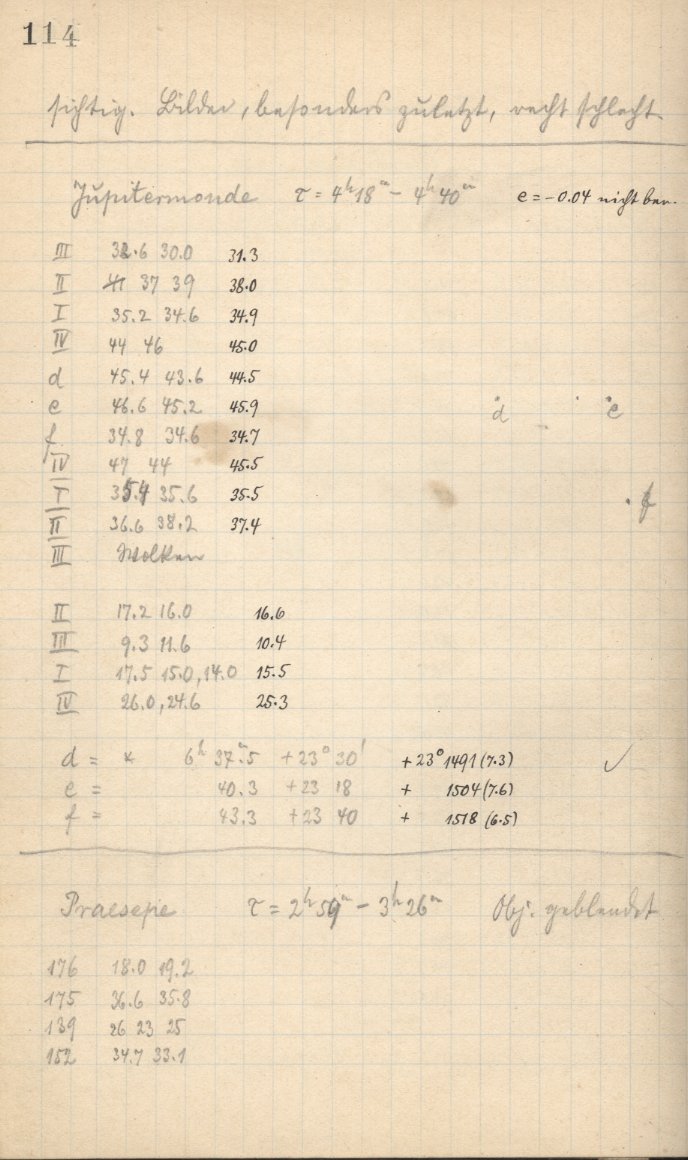 114
sichtig. Bilder, besonders zuletzt, recht schlecht.
Jupitermonde τ = 4ʰ18ᵐ – 4ʰ40ᵐ e = -0.04 nicht ber.
III 32.6 30.0 31.3
II 37 39 38.0
I 35.2 34.6 34.9
IV 44 46 45.0
d 45.4 43.6 44.5
e 46.6 45.2 45.9
d e
f 34.8 34.6 34.7
IV 47 44 45.5
I 35.4 35.6 35.5
f
II 36.6 38.2 37.4
III Wolken
II 17.2 16.0 16.6
III 9.3 11.6 10.4
I 17.5 15.0, 14.0 15.5
IV 26.0, 24.6 25.3
d = * 6ʰ 37ᵐ.5 +23° 30' +23° 1491 (7.3) ✓
e = 40.3 +23 18 + 1504 (7.6)
f = 43.3 +23 40 + 1518 (6.5)
Praesepe τ = 2ʰ 59ᵐ – 3ʰ 26ᵐ Obj. geblendet
176 18.0 19.2
175 36.6 35.8
139 26 23 25
152 34.7 33.1